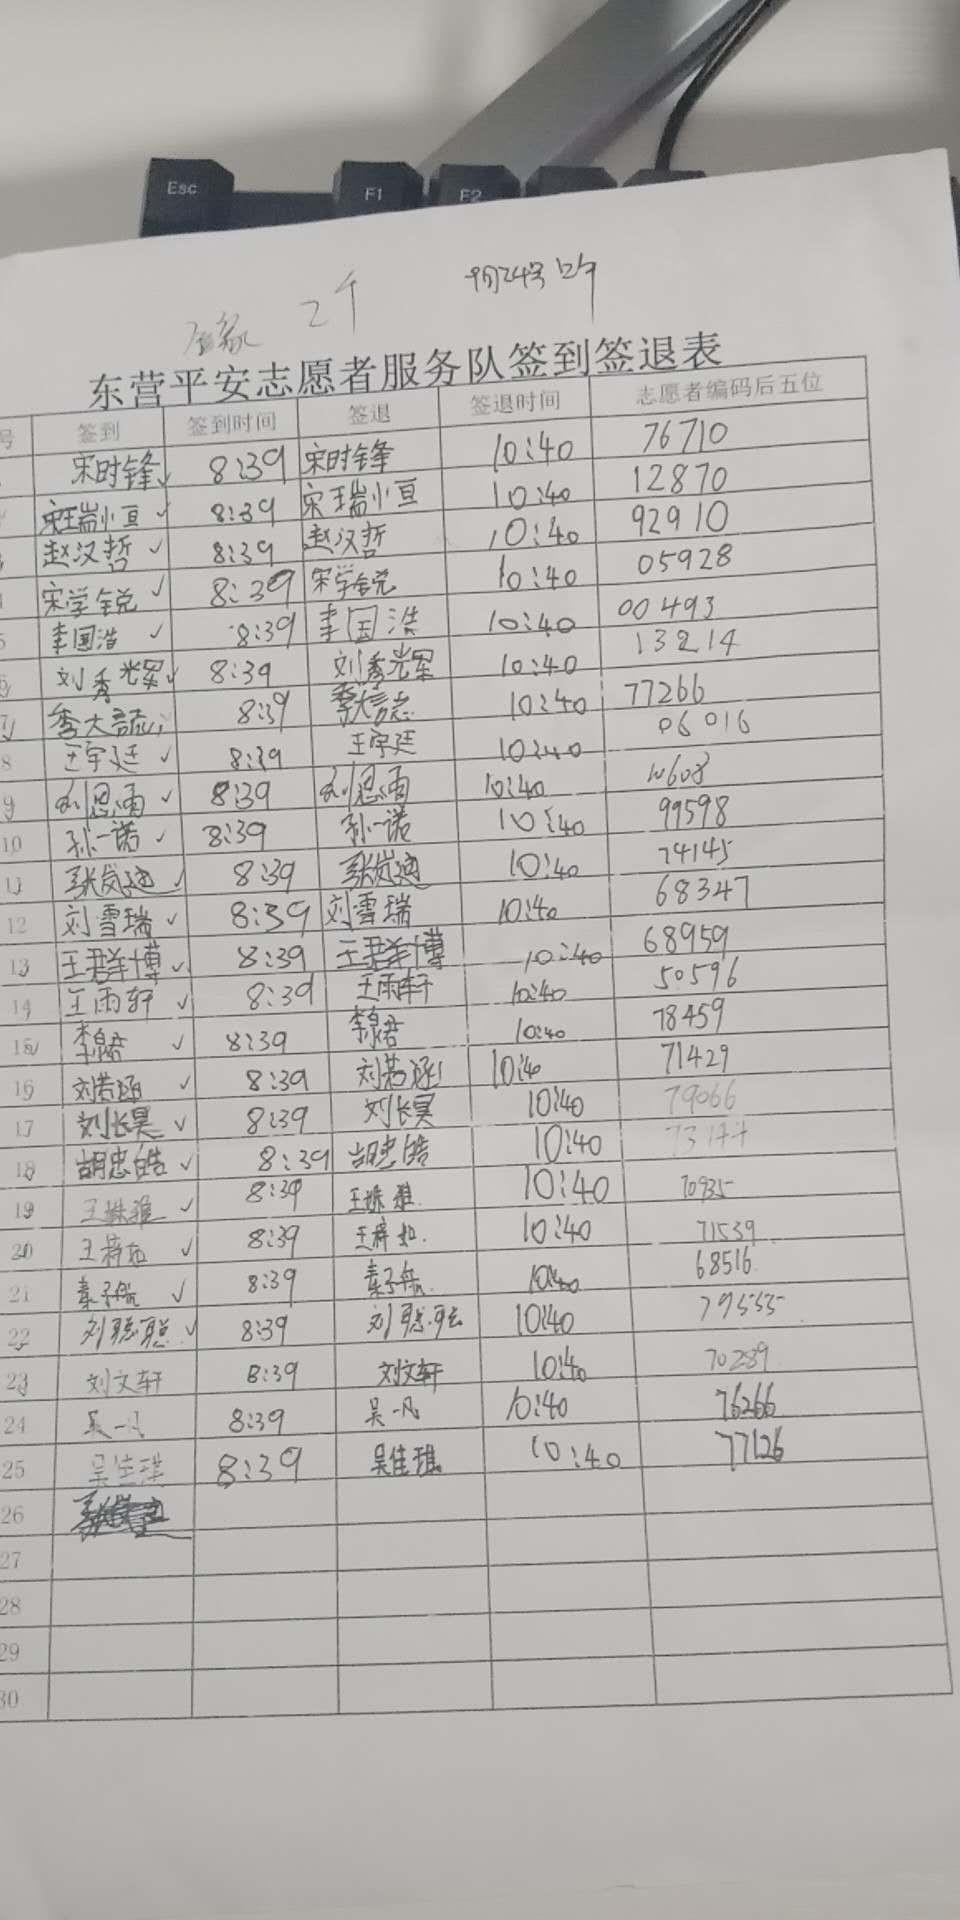 Esc F1 F2
9月24号 上午
2个
东营平安志愿者服务队签到签退表
号 签到 签到时间 签退 签退时间 志愿者编码后五位
宋时锋✓ 8:39 宋时锋 10:40 76710
宋瑞小亘✓ 8:39 宋瑞小亘 10:40 12870
赵汉哲✓ 8:39 赵汉哲 10:40 92910
宋学锐✓ 8:39 宋学锐 10:40 05928
5 李国浩✓ 8:39 李国浩 10:40 00493
6 刘秀光军✓ 8:39 刘秀光军 10:40 13214
7 季大言志 8:39 季大言志 10:40 77266
8 王宇廷✓ 8:39 王宇廷 10:40 06016
9 刘恩雨✓ 8:39 刘恩雨 10:40
10 孙一诺✓ 8:39 孙一诺 10:40 99598
11 张岚迪✓ 8:39 张岚迪 10:40 74145
12 刘雪瑞✓ 8:39 刘雪瑞 10:40 68347
13 王君羊博✓ 8:39 王君羊博 10:40 68959
14 王雨轩✓ 8:39 王雨轩 10:40 50596
15 ✓ 8:39 10:40 78459
16 刘若涵✓ 8:39 刘若涵 10:40 71429
17 刘长昊✓ 8:39 刘长昊 10:40 79066
18 胡忠皓✓ 8:39 胡忠皓 10:40 73144
19 王姝雅✓ 8:39 王姝雅. 10:40 70935
20 ✓ 8:39 10:40 71539
21 ✓ 8:39 10:40 68516
22 刘聪聪✓ 8:39 刘聪聪 10:40 79555
23 刘文轩 8:39 刘文轩 10:40 70289
24 吴一凡 8:39 吴一凡 10:40 76266
25 吴佳琪 8:39 吴佳琪 10:40 77126
26
27
28
29
30